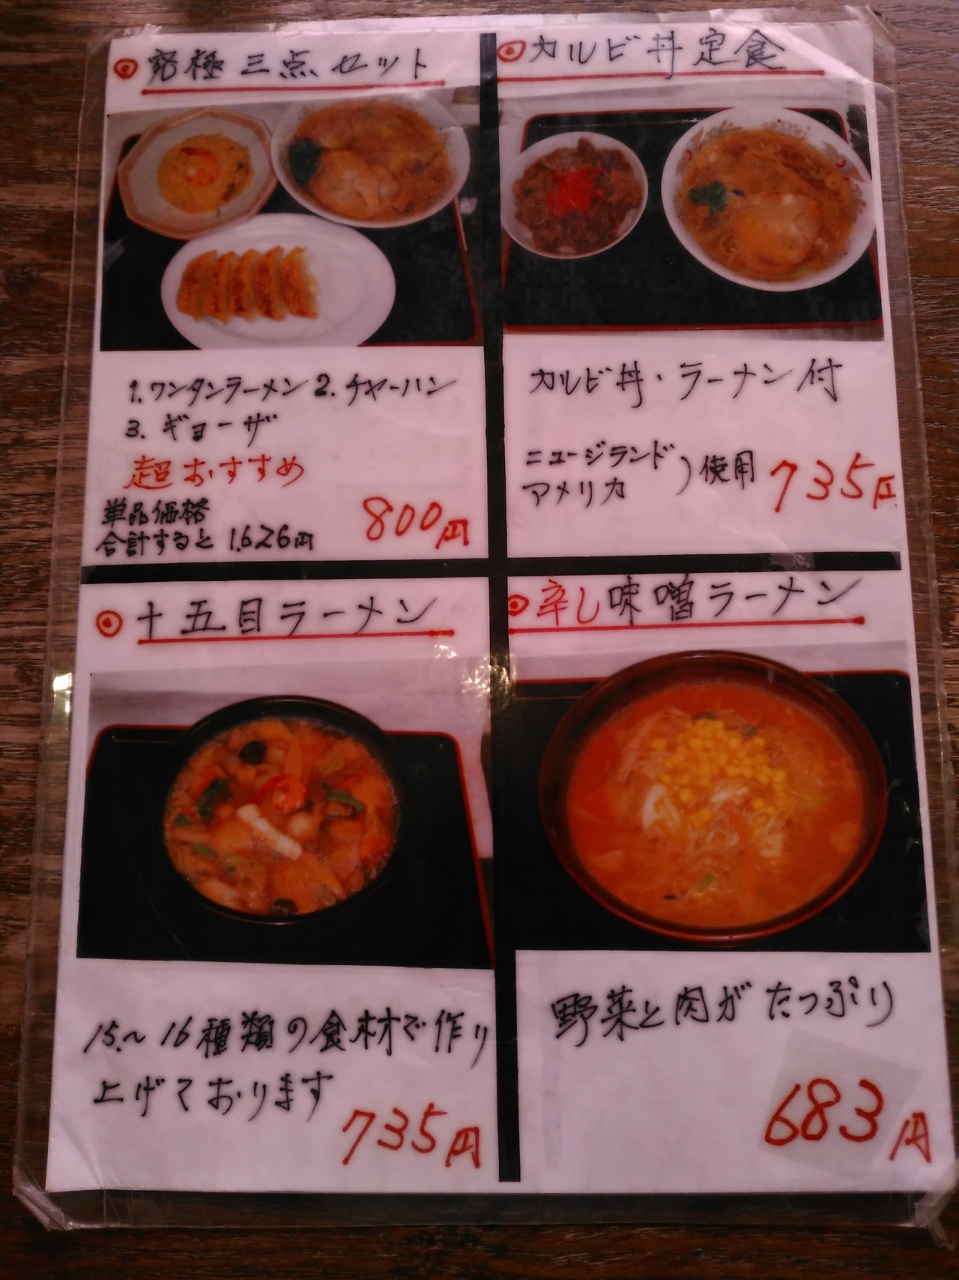 ◉究極三点セット
1.ワンタンラーメン 2.チャーハン
3.ギョーザ
超おすすめ
単品価格
合計すると 1,626円
800円
◉カルビ丼定食
カルビ丼・ラーナン付
ニュージランド
アメリカ
)使用
735円
◉十五目ラーメン
15.〜16種類の食材で作り
上げております
735円
◉辛し味噌ラーメン
野菜と肉がたっぷり
683円